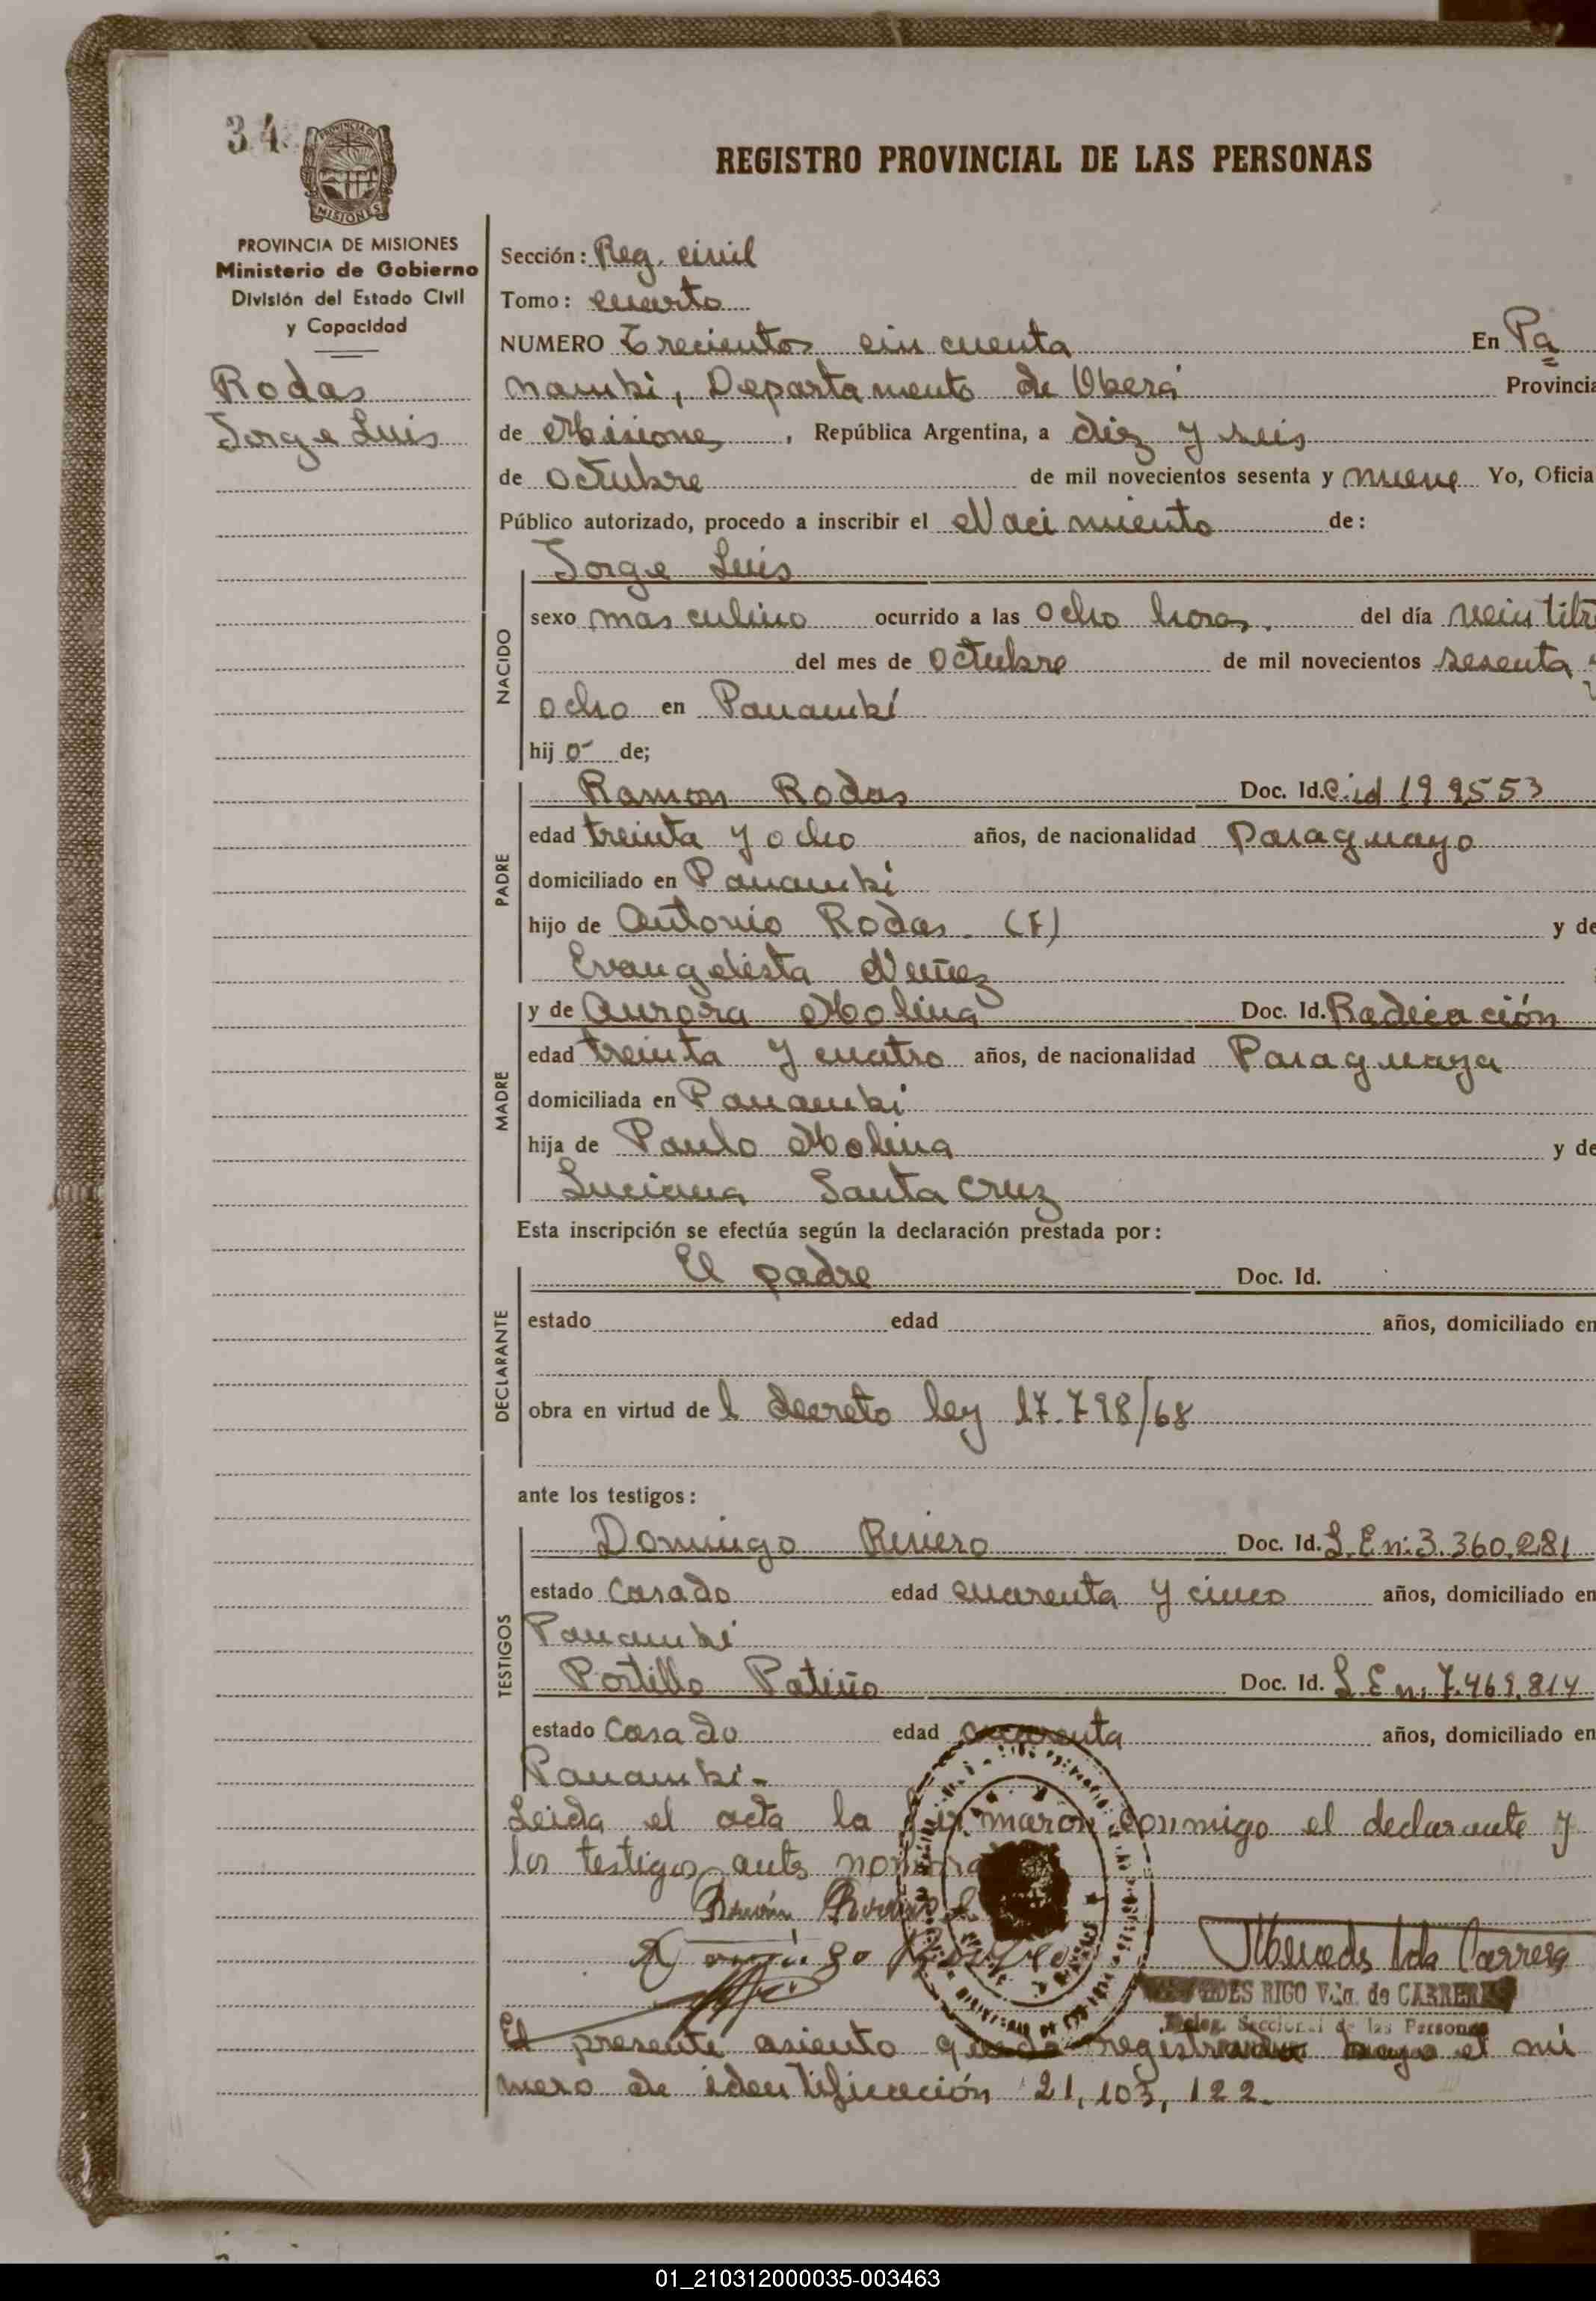 34
PROVINCIA DE
MISIONES
REGISTRO PROVINCIAL DE LAS PERSONAS
PROVINCIA DE MISIONES
Ministerio de Gobierno
División del Estado Civil
y Capacidad
Rodas
Jorge Luis
Sección: Reg. civil
Tomo: cuarto
NUMERO Trecientos cincuenta En Pa
nambi, Departamento de Oberá Provincia
de Misiones, República Argentina, a diez y seis
de octubre de mil novecientos sesenta y nueve Yo, Oficia
Público autorizado, procedo a inscribir el Nacimiento de:
NACIDO
Jorge Luis
sexo masculino ocurrido a las ocho horas. del día veintitr
del mes de octubre de mil novecientos sesenta y
ocho en Panambí
hij o de;
PADRE
Ramon Rodas Doc. Id. C.id 199553
edad treinta y ocho años, de nacionalidad Paraguayo
domiciliado en Panambí
hijo de Antonio Rodas. (F) y de
Evangelista Nuñez
MADRE
y de Aurora Molina Doc. Id. Radicación
edad treinta y cuatro años, de nacionalidad Paraguaya
domiciliada en Panambi
hija de Paulo Molina y de
Luciana Santa Cruz
Esta inscripción se efectúa según la declaración prestada por:
DECLARANTE
El padre Doc. Id.
estado edad años, domiciliado en
obra en virtud de l decreto ley 17.798/68
ante los testigos:
TESTIGOS
Domingo Riviero Doc. Id. L.E.n: 3.360.281
estado Casado edad cuarenta y cinco años, domiciliado en
Panambi
Portillo Patiño Doc. Id. L.E n: 7.469.814
estado Casado edad cuarenta años, domiciliado en
Panambi.-
Leida el acta la firmaron conmigo el declarante y
los testigos antes
Domingo
Carrera
RIGO Vda. de CARRERA
Deleg. Seccional de las Personas
El presente asiento queda registrado bayo el nú
mero de identificación 21,103,122.
01_210312000035-003463